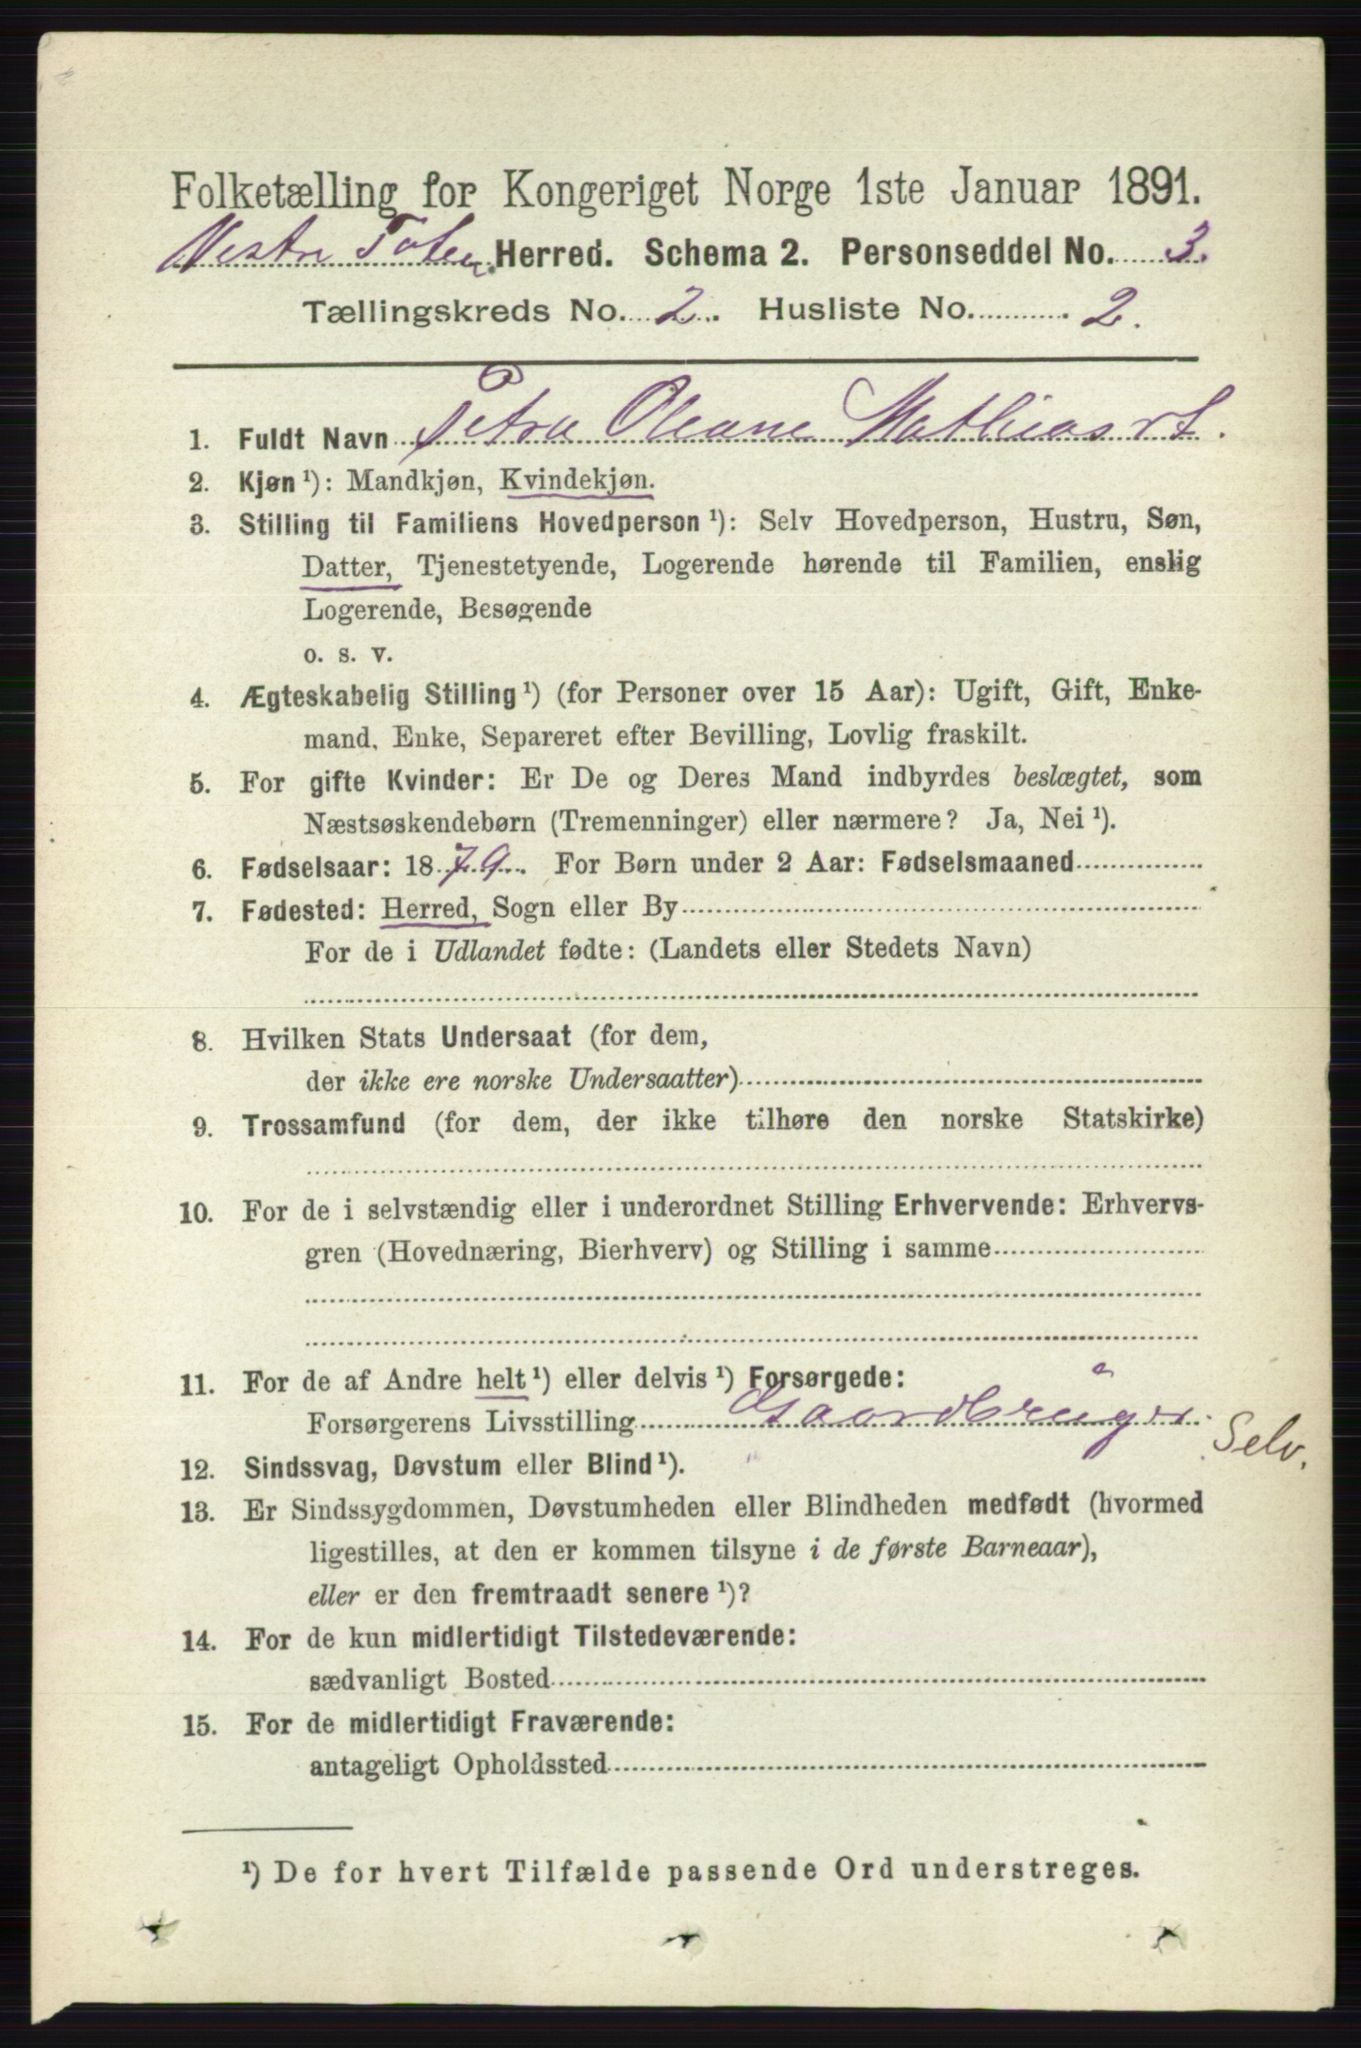 Folketælling for Kongeriget Norge 1ste Januar 1891.
Vestre Toten Herred. Schema 2. Personseddel No. 3.
Tællingskreds No. 2. Husliste No. 2.
1. Fuldt Navn Petra Oleane Mathiasdt.
2. Kjøn ¹): Mandkjøn, Kvindekjøn.
3. Stilling til Familiens Hovedperson ¹): Selv Hovedperson, Hustru, Søn,
Datter, Tjenestetyende, Logerende hørende til Familien, enslig
Logerende, Besøgende
o. s. v.
4. Ægteskabelig Stilling ¹) (for Personer over 15 Aar): Ugift, Gift, Enke-
mand, Enke, Separeret efter Bevilling, Lovlig fraskilt.
5. For gifte Kvinder: Er De og Deres Mand indbyrdes beslægtet, som
Næstsøskendebørn (Tremenninger) eller nærmere? Ja, Nei ¹).
6. Fødselsaar: 1879. For Børn under 2 Aar: Fødselsmaaned
7. Fødested: Herred, Sogn eller By
For de i Udlandet fødte: (Landets eller Stedets Navn)
8. Hvilken Stats Undersaat (for dem,
der ikke ere norske Undersaatter)
9. Trossamfund (for dem, der ikke tilhøre den norske Statskirke)
10. For de i selvstændig eller i underordnet Stilling Erhvervende: Erhvervs-
gren (Hovednæring, Bierhverv) og Stilling i samme
11. For de af Andre helt ¹) eller delvis ¹) Forsørgede:
Forsørgerens Livsstilling Gaardbruger. Selv.
12. Sindssvag, Døvstum eller Blind ¹).
13. Er Sindssygdommen, Døvstumheden eller Blindheden medfødt (hvormed
ligestilles, at den er kommen tilsyne i de første Barneaar),
eller er den fremtraadt senere ¹)?
14. For de kun midlertidigt Tilstedeværende:
sædvanligt Bosted
15. For de midlertidigt Fraværende:
antageligt Opholdssted
¹) De for hvert Tilfælde passende Ord understreges.